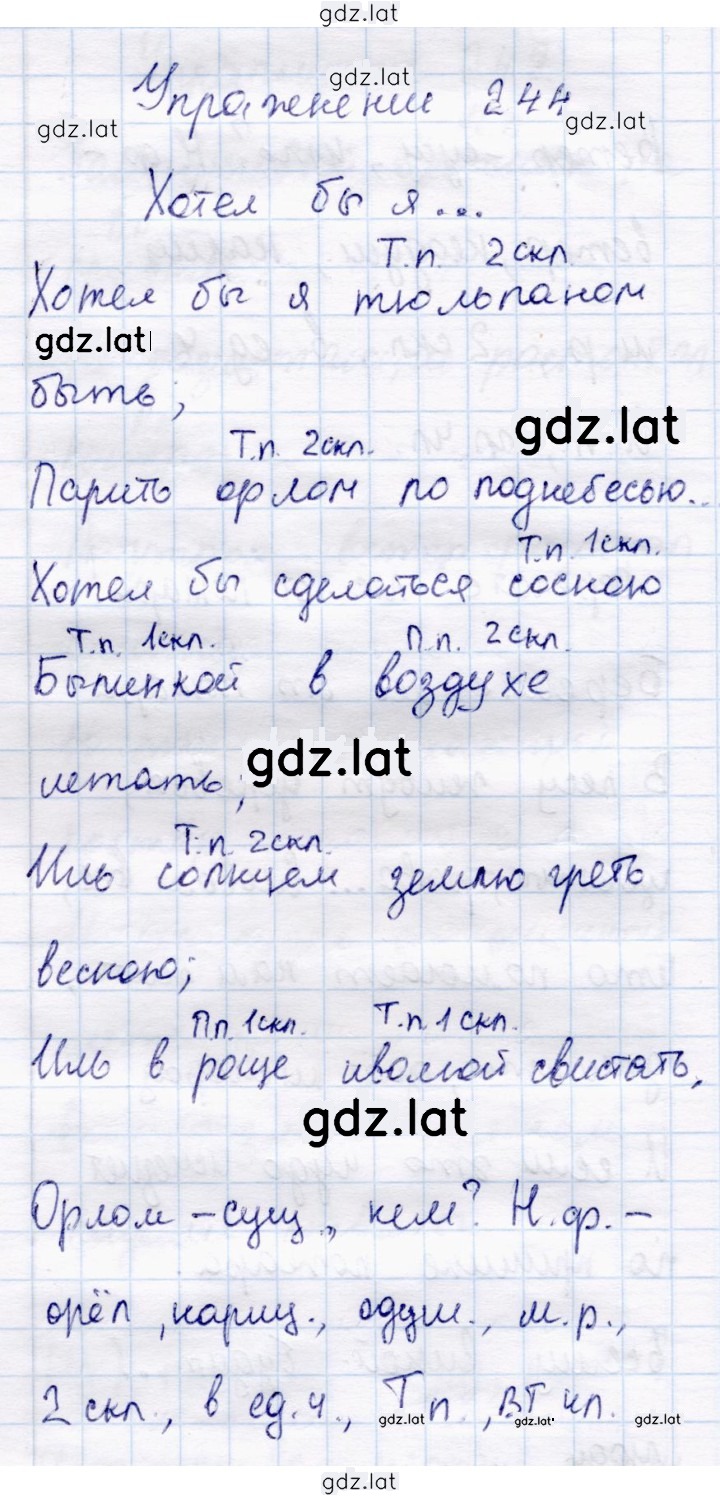 gdz.lat
gdz.lat
Упражнении 244
gdz.lat gdz.lat
Хотел бы я...
Т.п. 2скл.
Хотел бы я тюльпаном
gdz.lat
быть;
gdz.lat
Т.п. 2скл.
Парить орлом по поднебесью..
Т.п. 1скл.
Хотел бы сделаться сосною
Т.п. 1скл. П.п. 2скл.
Былинкой в воздухе
gdz.lat
летать;
Т.п. 2скл.
Иль солнцем землю греть
весною;
П.п. 1скл. Т.п. 1скл.
Иль в роще иволгой свистать,
gdz.lat
Орлом – сущ., кем? Н.ф. –
орёл, нариц., одуш., м.р.,
2 скл., в ед.ч., Т.п.,
gdz.lat gdz.lat gdz.lat
gdz.lat